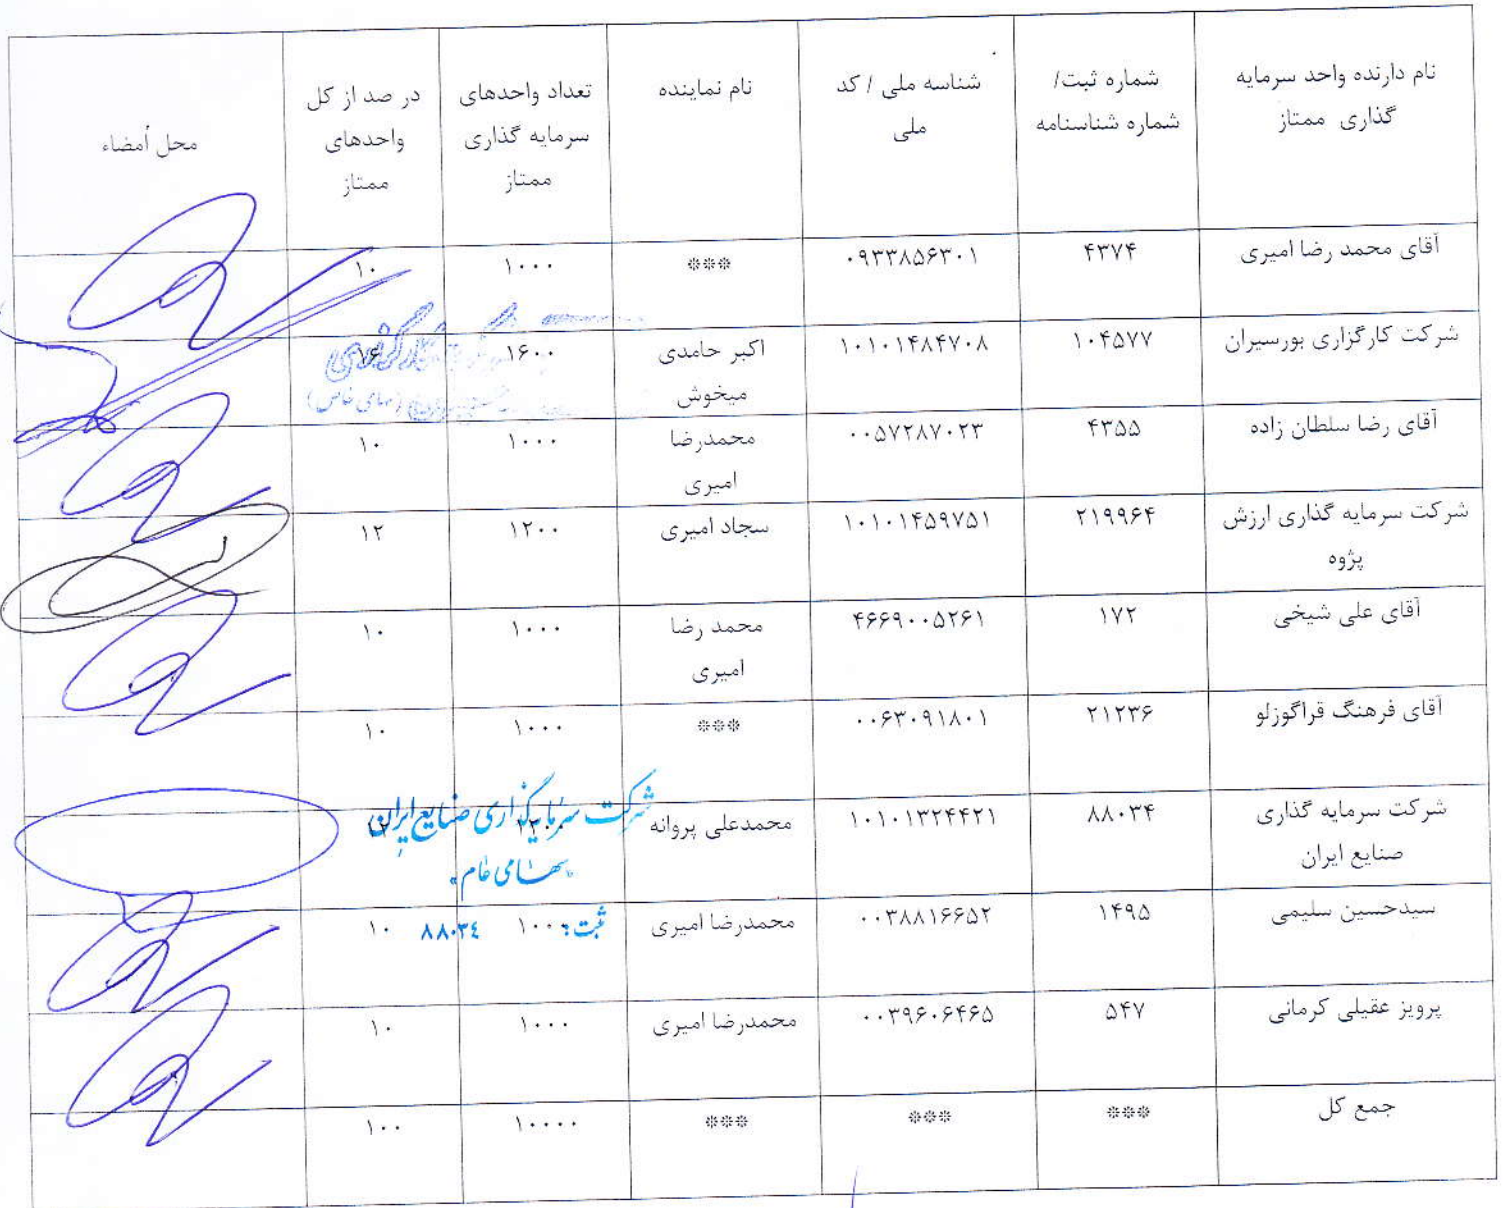 نام دارنده واحد سرمایه
گذاری ممتاز
شماره ثبت/
شماره شناسنامه
شناسه ملی / کد
ملی
نام نماینده
تعداد واحدهای
سرمایه گذاری
ممتاز
در صد از کل
واحدهای
ممتاز
محل اُمضاء
آقای محمد رضا امیری
۴۳۷۴
۰۹۳۳۸۵۶۳۰۱
***
۱۰۰۰
۱۰
شرکت کارگزاری بورسیران
۱۰۴۵۷۷
۱۰۱۰۱۴۸۴۷۰۸
اکبر حامدی
میخوش
۱۶۰۰
۱۶
کارگزاری
(سهامی خاص)
آقای رضا سلطان زاده
۴۳۵۵
۰۰۵۷۲۸۷۰۲۳
محمدرضا
امیری
۱۰۰۰
۱۰
شرکت سرمایه گذاری ارزش
پژوه
۲۱۹۹۶۴
۱۰۱۰۱۴۵۹۷۵۱
سجاد امیری
۱۲۰۰
۱۲
آقای علی شیخی
۱۷۲
۴۶۶۹۰۰۵۲۶۱
محمد رضا
امیری
۱۰۰۰
۱۰
آقای فرهنگ قراگوزلو
۲۱۲۳۶
۰۰۶۳۰۹۱۸۰۱
***
۱۰۰۰
۱۰
شرکت سرمایه گذاری
صنایع ایران
۸۸۰۳۴
۱۰۱۰۱۳۲۴۴۲۱
محمدعلی پروانه
۱۲۰۰
۱۲
شرکت سرمایه‌گذاری صنایع ایران
"سهامی عام"
ثبت: ۸۸۰۳٤
سیدحسین سلیمی
۱۴۹۵
۰۰۳۸۸۱۶۶۵۲
محمدرضا امیری
۱۰۰۰
۱۰
پرویز عقیلی کرمانی
۵۴۷
۰۰۳۹۶۰۶۴۶۵
محمدرضا امیری
۱۰۰۰
۱۰
جمع کل
***
***
***
۱۰۰۰۰
۱۰۰